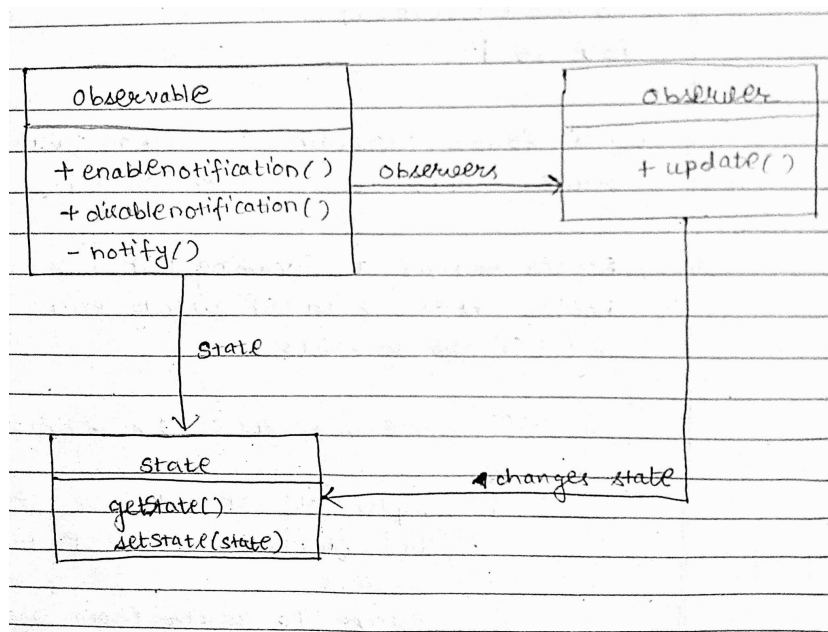 Observable
+ enablenotification()
+ disablenotification()
- notify()
observers
Observer
+ update()
state
state
getState()
setState(state)
changes state